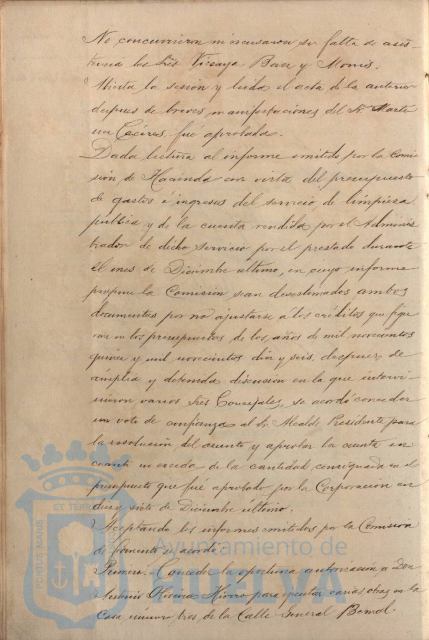 No concurrieron ni excusaron su falta de asis-
tencia los Srs Vizcaya Baez y Mones.
Abierta la sesión y leida el acta de la anterior
despues de breves manifestaciones del Sr. Martí-
n Cáceres fué aprobada.
Dada lectura al informe emitido por la Comi-
sión de Hacienda con vista del presupuesto
de gastos é ingresos del servicio de limpieza
pública y de la cuenta rendida por el Adminis-
trador de dicho servicio por el prestado durante
el mes de Diciembre ultimo, en cuyo informe
propone la Comisión sean desestimados ambos
documentos por no ajustarse a los créditos que figu-
ran en los presupuestos de los años de mil novecientos
quince y mil novecientos diez y seis, despues de
ámplia y detenida discusion en la que intervi-
nieron varios Sres Concejales, se acordó conceder
un voto de confianza al Sr. Alcalde Presidente para
la resolución del asunto y aprobar la cuenta en
cuanto no exceda de la cantidad consignada en el
presupuesto que fué aprobado por la Corporación en
diez y siete de Diciembre último.
Aceptando los informes emitidos por la Comisión
de fomento se acordó
Primero. Conceder la oportuna autorización a Don
Antonio Oliveira para ejecutar varias obras en la
Casa número tres de la Calle General Bernal
Ayuntamiento de
HUELVA